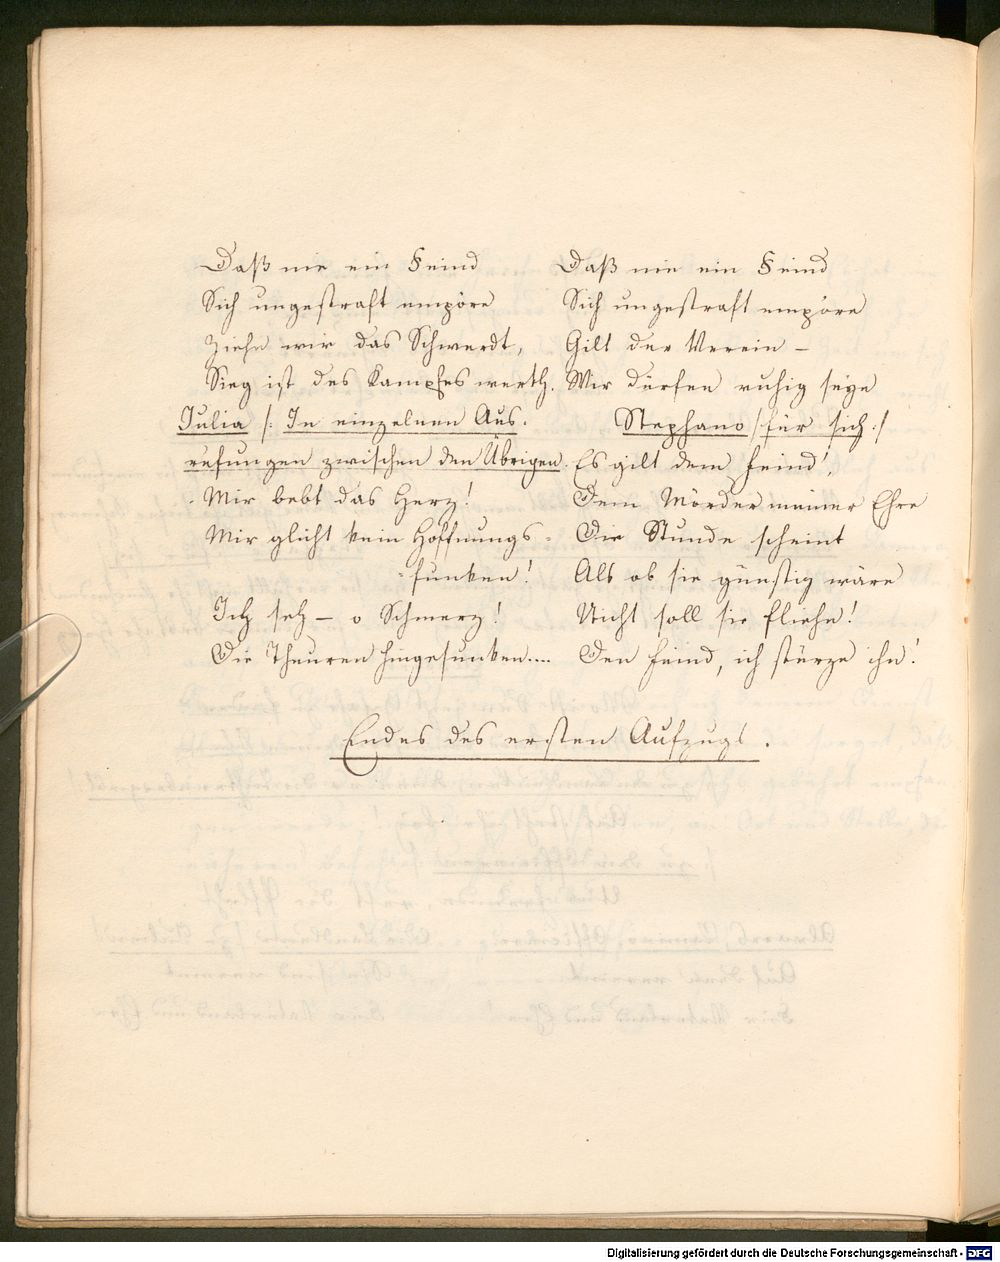 Daß nie ein Feind
Sich ungestraft empöre
Ziehn wir das Schwerdt,
Sieg ist des Kampfes werth.
Julia /: In einzelnen Aus.
rufungen zwischen den Übrigen.
Mir bebt das Herz!
Mir glicht kein Hoffnungs-
-funken!
Ich seh — o Schmerz!
Die Theuren hingesunken....
Daß nie ein Feind
Sich ungestraft empöre
Gilt der Verein —
Wir dürfen ruhig seyn
Stephano /: für sich :/
Es gilt dem Feind,
Dem Mörder meiner Ehre
Die Stunde scheint
Als ob sie günstig wäre
Nicht soll sie fliehn!
Den Feind, ich stürze ihn!
Endes des ersten Aufzugs.
Digitalisierung gefördert durch die Deutsche Forschungsgemeinschaft - DFG